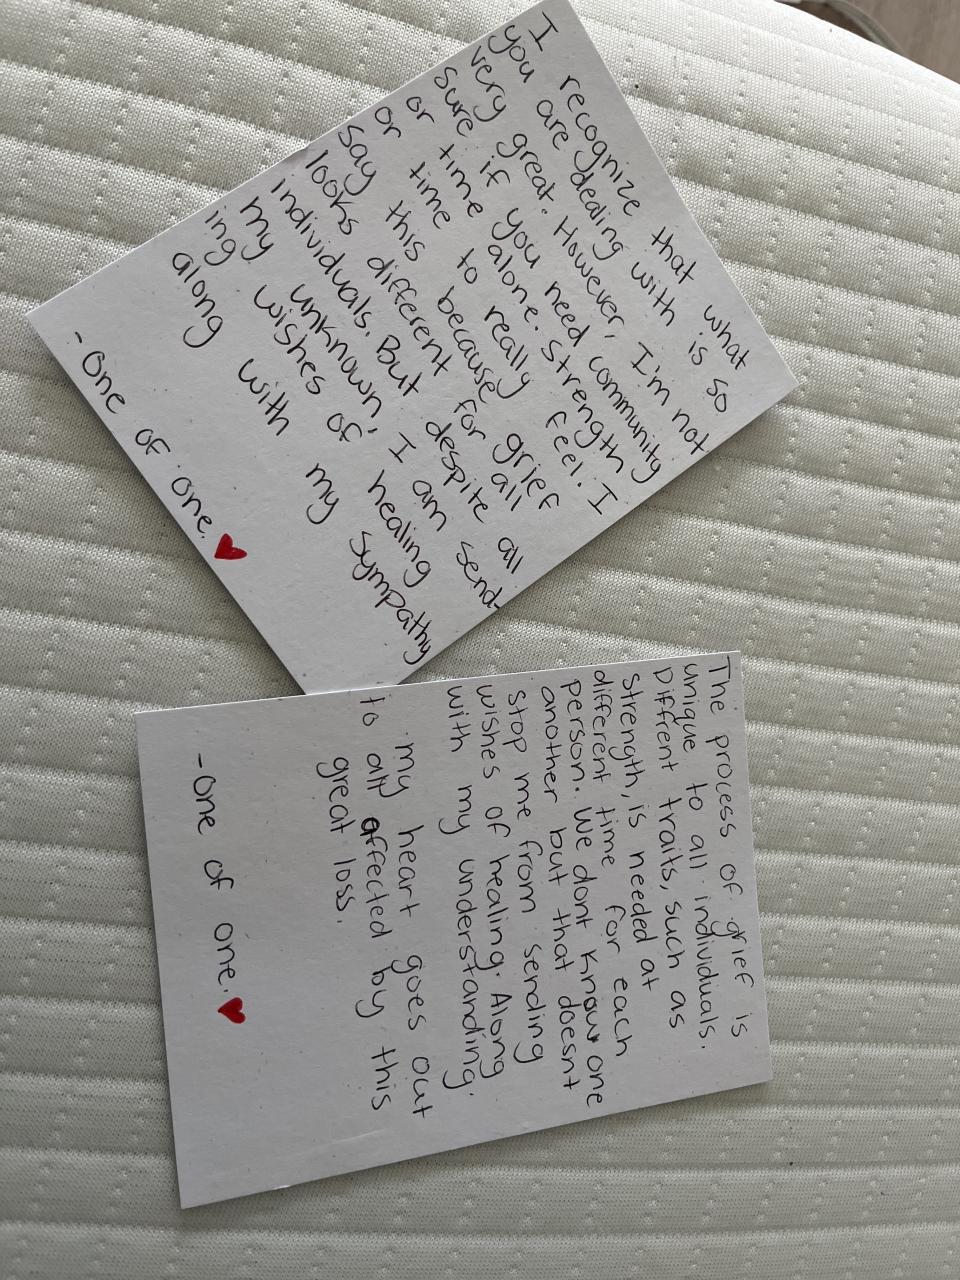 I recognize that what
you are dealing with is so
very great. However, I'm not
sure if you need community
or time alone. Strength
or time to really feel. I
say this because grief
looks different for all
individuals. But despite all
my unknown, I am send-
ing wishes of healing
along with my sympathy
-One of one.
The process of grief is
unique to all individuals.
Diffrent traits, such as
strength, is needed at
different time for each
person. We dont know one
another but that doesnt
stop me from sending
wishes of healing. Along
with my understanding.
my heart goes out
to all affected by this
great loss.
-One of one.